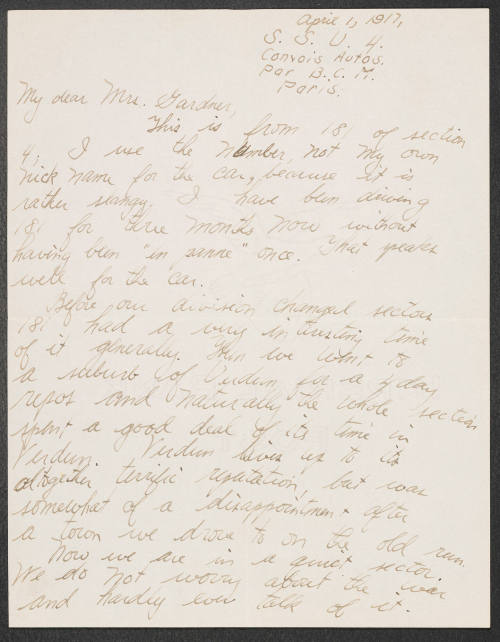 April 1, 1917,
S. S. U. 4.
Convois Autos.
Par B. C. M.
Paris.
My dear Mrs. Gardner,
This is from 181 of section
4; I use the number, not my own
nick name for the car, because it is
rather slangy. I have been driving
181 for three months now without
having been "in panne" once. That speaks
well for the car.
Before our division changed sectors
181 had a very interesting time
of it generally. Then we went to
a suburb of Verdun for a day
repos and naturally the whole section
spent a good deal of its time in
Verdun. Verdun lives up to its
altogether terrific reputation, but was
somewhat of a disappointment after
a town we drove to on the old run.
Now we are in a quiet sector.
We do not worry about the war
and hardly ever talk of it.